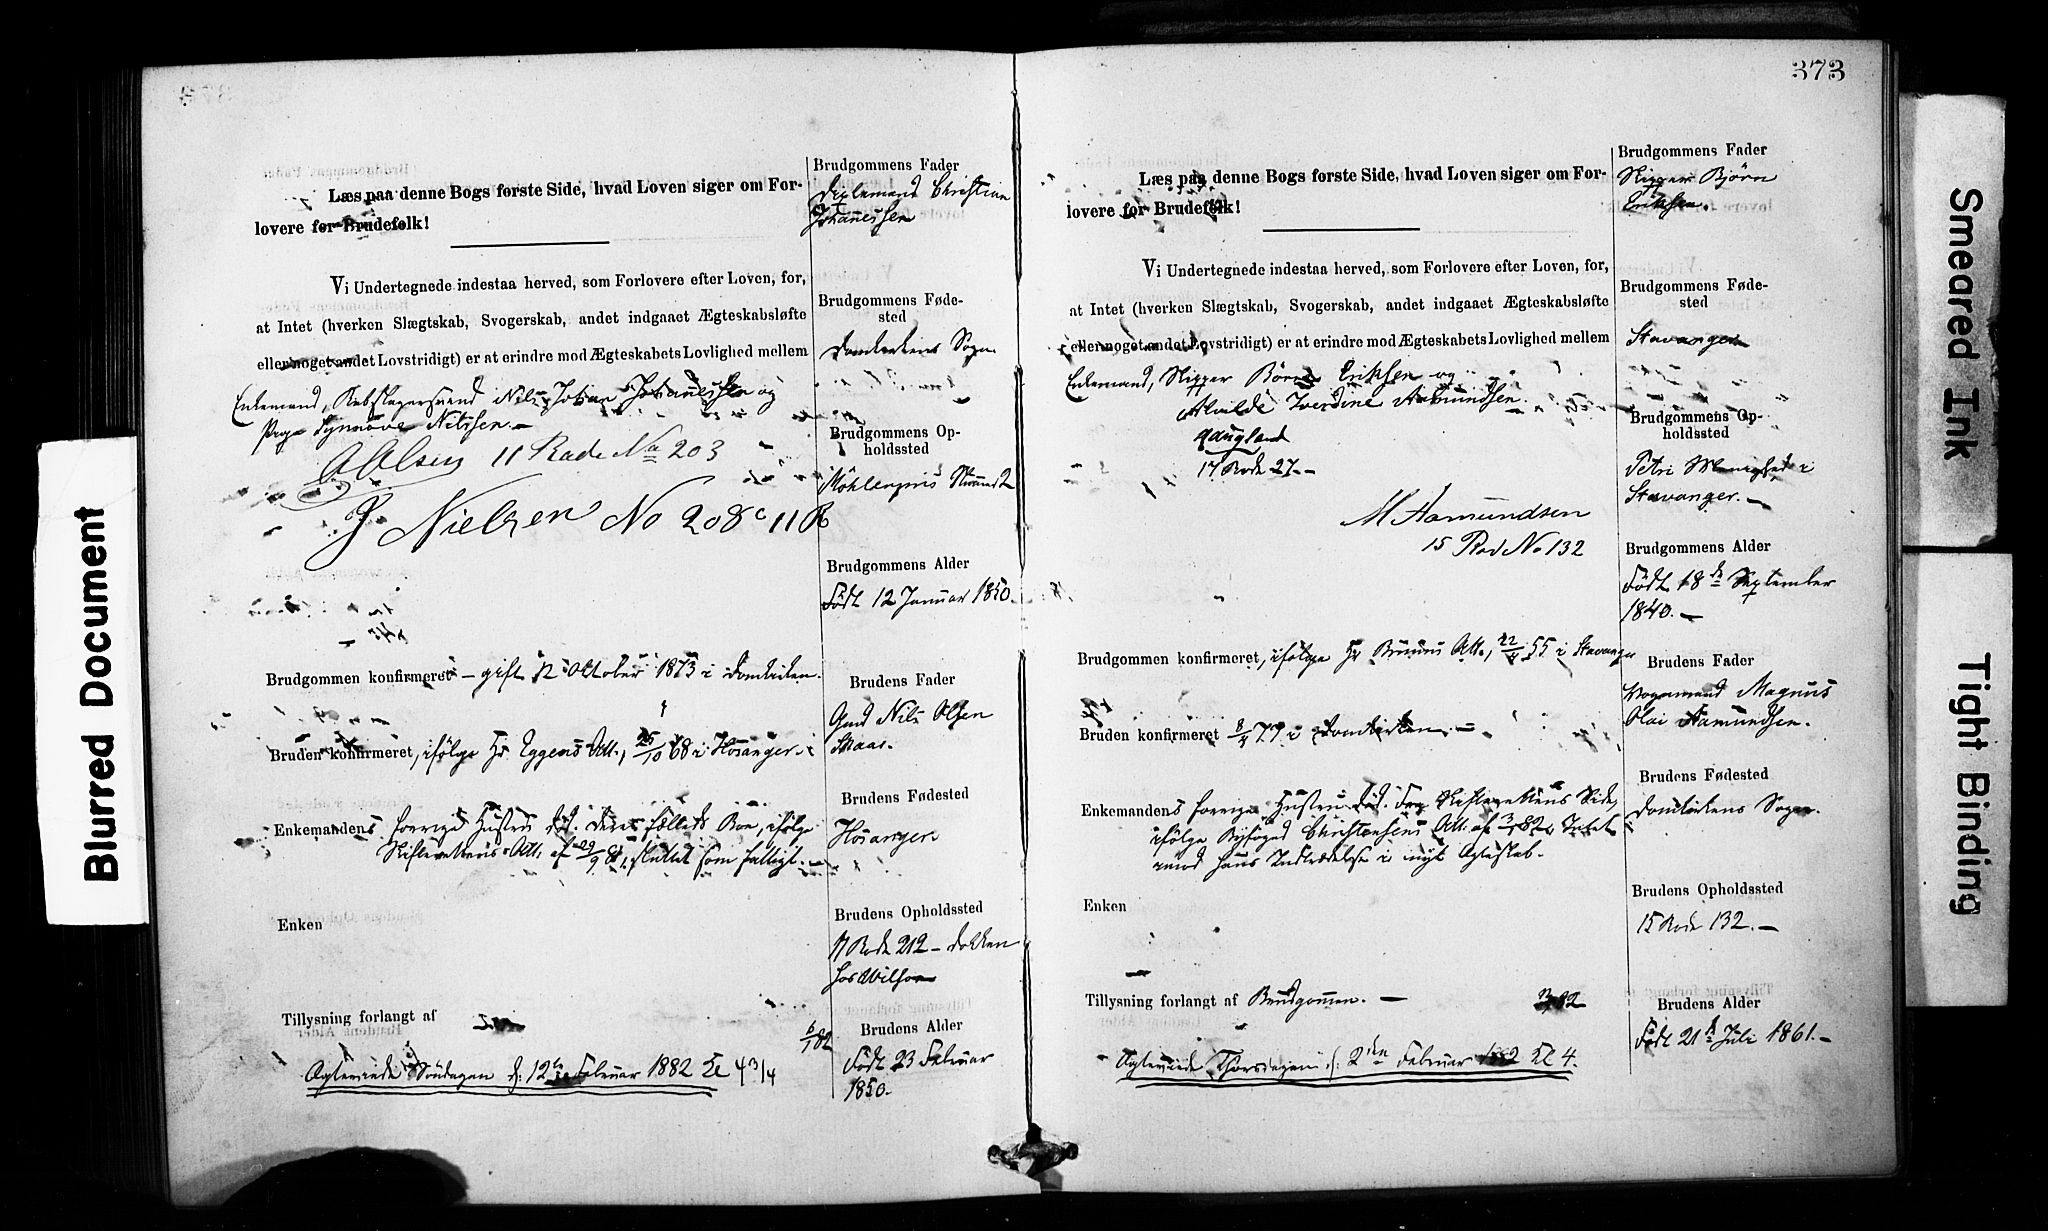 Læs paa denne Bogs første Side, hvad Loven siger om For-
lovere for Brudefolk!
Vi Undertegnede indestaa herved, som Forlovere efter Loven, for,
at Intet (hverken Slægtskab, Svogerskab, andet indgaaet Ægteskabsløfte
eller noget andet Lovstridigt) er at erindre mod Ægteskabets Lovlighed mellem
Enkemand, Rebslagersvend Nils Johan Johannessen og
Pige Synnøve Nilssen. —
A Olsen 11 Rode No 203
J Nielsen No 208c 11 R
Brudgommen konfirmeret — gift 12 Oktober 1873 i Domkirken.
Bruden konfirmeret, ifølge Hr Eggens Att., 25/10 68 i Hosanger. —
Enkemandens forrige Hustru død. Deres Fælleds Boe, ifølge
Skifterettens Att. af 29/9 81, sluttet som fattigt. —
Enken
Tillysning forlangt af
6/1 82
Agteviede Søndagen d: 12te Februar 1882 Kl 4 3/4
Brudgommens Fader
Christian
Johannessen
Brudgommens Føde-
sted
Domkirkens Sogn
Brudgommens Op-
holdssted
Møhlenpris
Brudgommens Alder
Født 12 Januar 1850.
Brudens Fader
Gmd Nils Olsen
Skaar.
Brudens Fødested
Hosanger
Brudens Opholdssted
11 Rode 212 — Dokken
hos Wilson
Brudens Alder
Født 23 Februar
1850.
373
Læs paa denne Bogs første Side, hvad Loven siger om For-
lovere for Brudefolk!
Vi Undertegnede indestaa herved, som Forlovere efter Loven, for,
at Intet (hverken Slægtskab, Svogerskab, andet indgaaet Ægteskabsløfte
eller noget andet Lovstridigt) er at erindre mod Ægteskabets Lovlighed mellem
Enkemand, Skipper Bjørn Eriksen og
Alvilde Iverdine Aamundsen.
Haugland
17 Rode 27. —
M Aamundsen
15 Rod No 132
Brudgommen konfirmeret, ifølge Hr Bruuns Att., 22/4 55 i Stavanger
Bruden konfirmeret 8/4 77 i Domkirken. —
Enkemandens forrige Hustru død. Fra Skifterettens Side,
ifølge Byfogd Christensens Att. af 3/1 82, Intet
imod hans Indtrædelse i nyt Ægteskab.
Enken
Tillysning forlangt af Brudgommen. —
Agteviede Thorsdagen d: 2den Februar 1882 Kl 4.
Brudgommens Fader
Skipper Bjørn
Eriksen.
Brudgommens Føde-
sted
Stavanger
Brudgommens Op-
holdssted
Petri Menighed i
Stavanger. —
Brudgommens Alder
Født 18de September
1840. —
Brudens Fader
Vognmand Magnus
Olai Aamundsen.
Brudens Fødested
Domkirkens Sogn.
Brudens Opholdssted
15 Rode 132. —
Brudens Alder
Født 21de Juli 1861. —
Blurred Document
Smeared Ink
Tight Binding